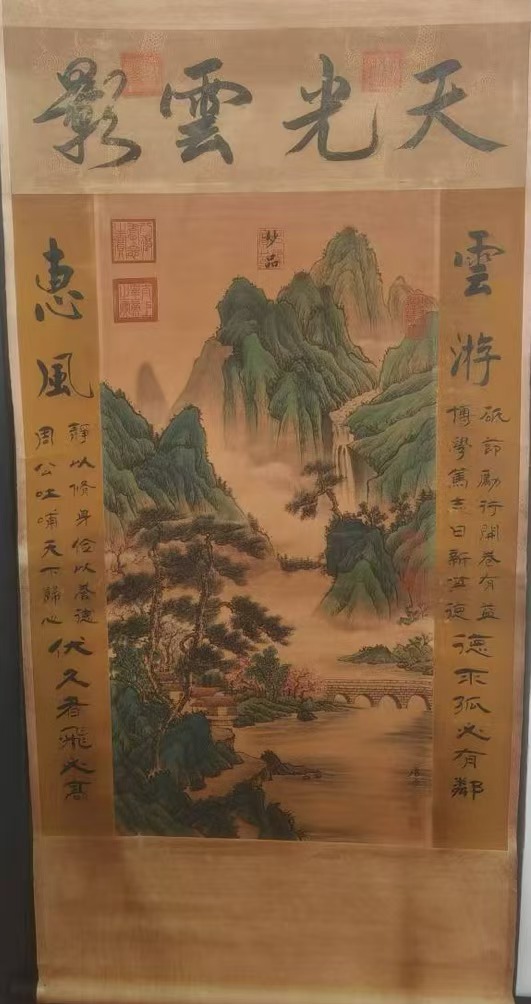 天光雲影
妙品
雲游
砥節勵行開卷有益
博學篤志日新其德
德不孤必有鄰
惠風
靜以修身儉以養德
周公吐哺天下歸心
伏久者飛必高